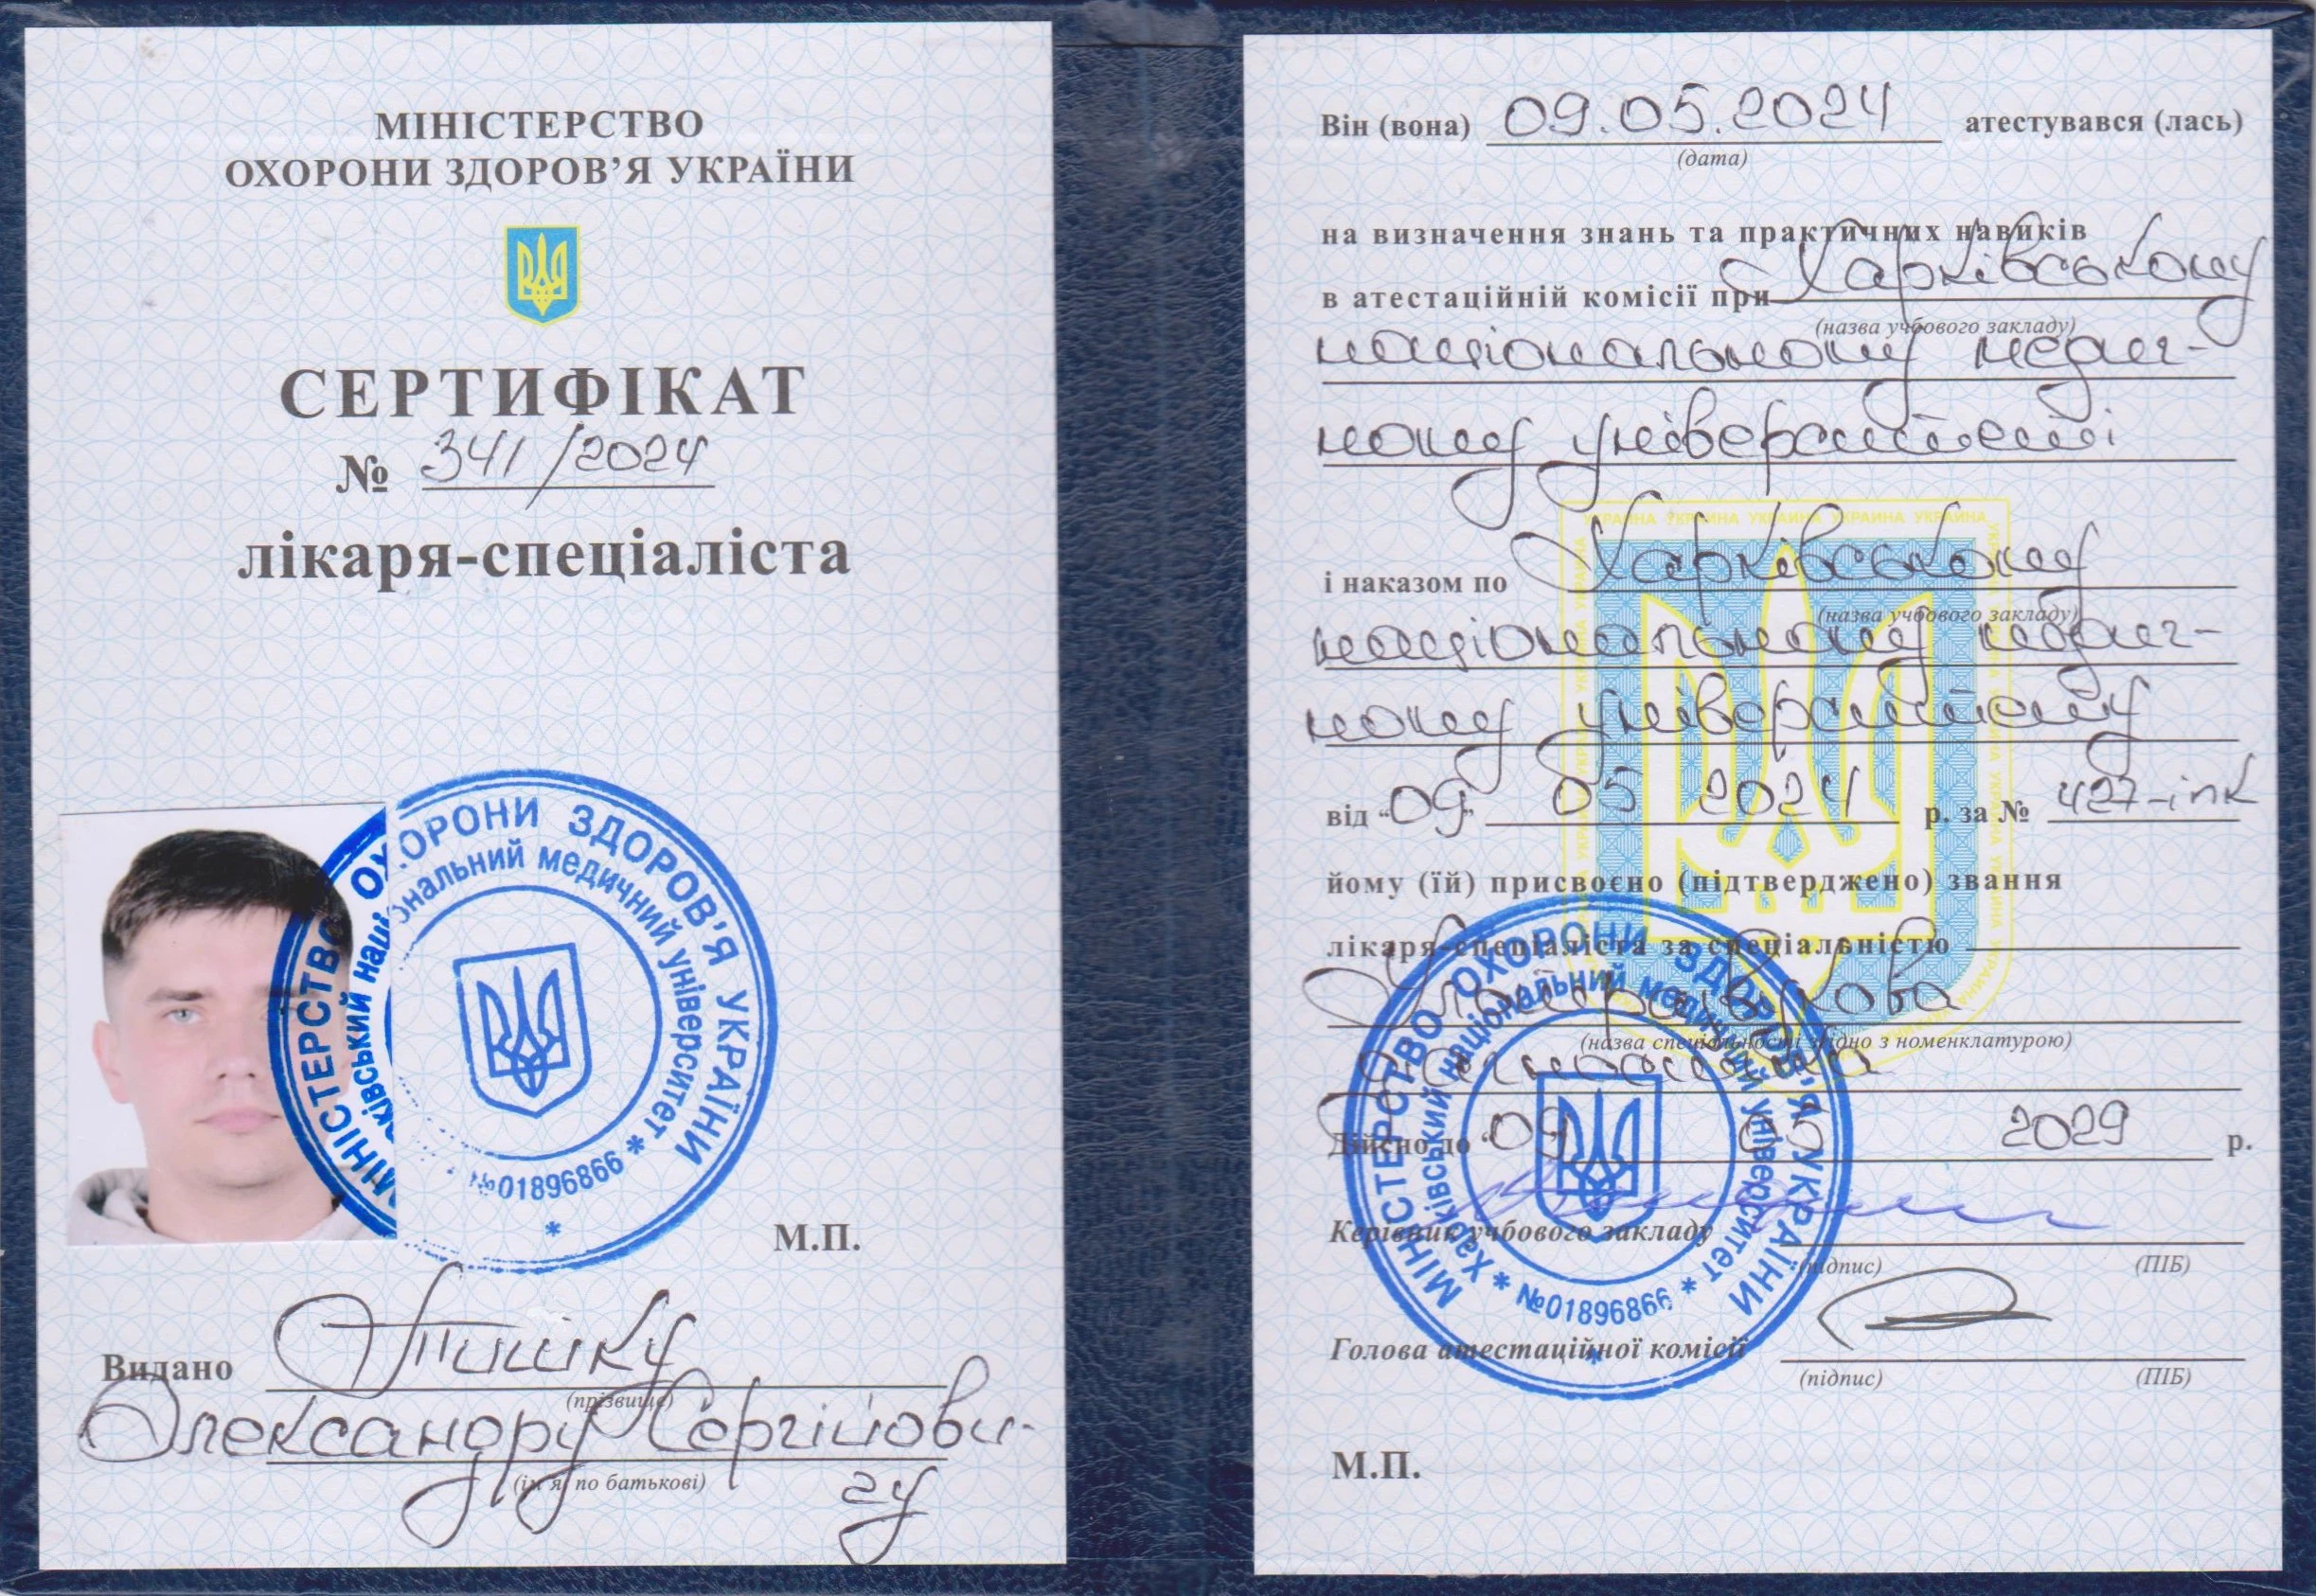 МІНІСТЕРСТВО
ОХОРОНИ ЗДОРОВ’Я УКРАЇНИ
СЕРТИФІКАТ
№ 341/2024
лікаря-спеціаліста
МІНІСТЕРСТВО ОХОРОНИ ЗДОРОВ'Я УКРАЇНИ
національний медичний університет * №01896866 *
М.П.
Видано Тішіку
(прізвище)
Олександру Сергійови-
(ім'я, по батькові)
чу
Він (вона) 09.05.2024 атестувався (лась)
(дата)
на визначення знань та практичних навиків
в атестаційній комісії при Харківському
(назва учбового закладу)
національному медич-
ному університеті
УКРАИНА УКРАИНА УКРАИНА УКРАИНА УКРАИНА
і наказом по Харківському
(назва учбового закладу)
національному медич-
ному університету
від “09” 05 2024 р. за № 427-іпк
йому (їй) присвоєно (підтверджено) звання
лікаря-спеціаліста за спеціальністю
Ультразвукова
(назва спеціальності згідно з номенклатурою)
діагностика
Дійсно до “09” 05 2029 р.
Керівник учбового закладу
(підпис) (ПІБ)
Голова атестаційної комісії
(підпис) (ПІБ)
МІНІСТЕРСТВО ОХОРОНИ ЗДОРОВ'Я УКРАЇНИ
Харківський національний медичний університет * №01896866 *
М.П.